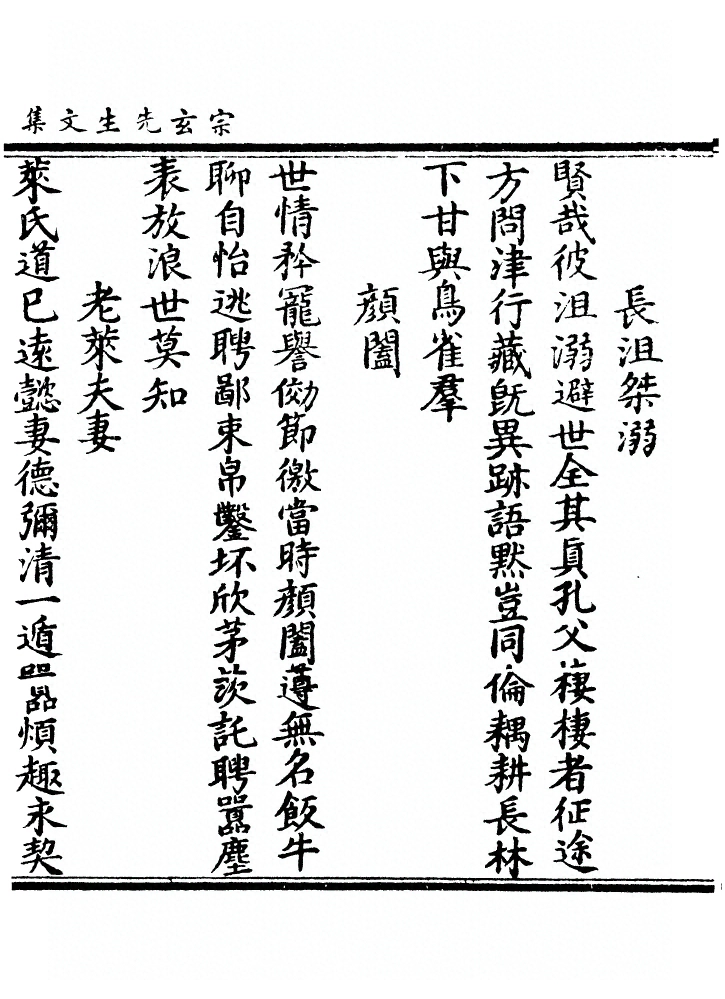 宗玄先生文集
長沮桀溺
賢哉彼沮溺避世全其眞孔父棲棲者征途
方問津行藏旣異跡語默豈同倫耦耕長林
下甘與鳥雀羣
顏闔
世情矜寵譽効節徼當時顏闔遵無名飯牛
聊自怡逃聘鄙束帛鑿坏欣茅茨託聘囂塵
表放浪世莫知
老萊夫妻
萊氏道已遠懿妻德彌清一遁囂煩趣永契